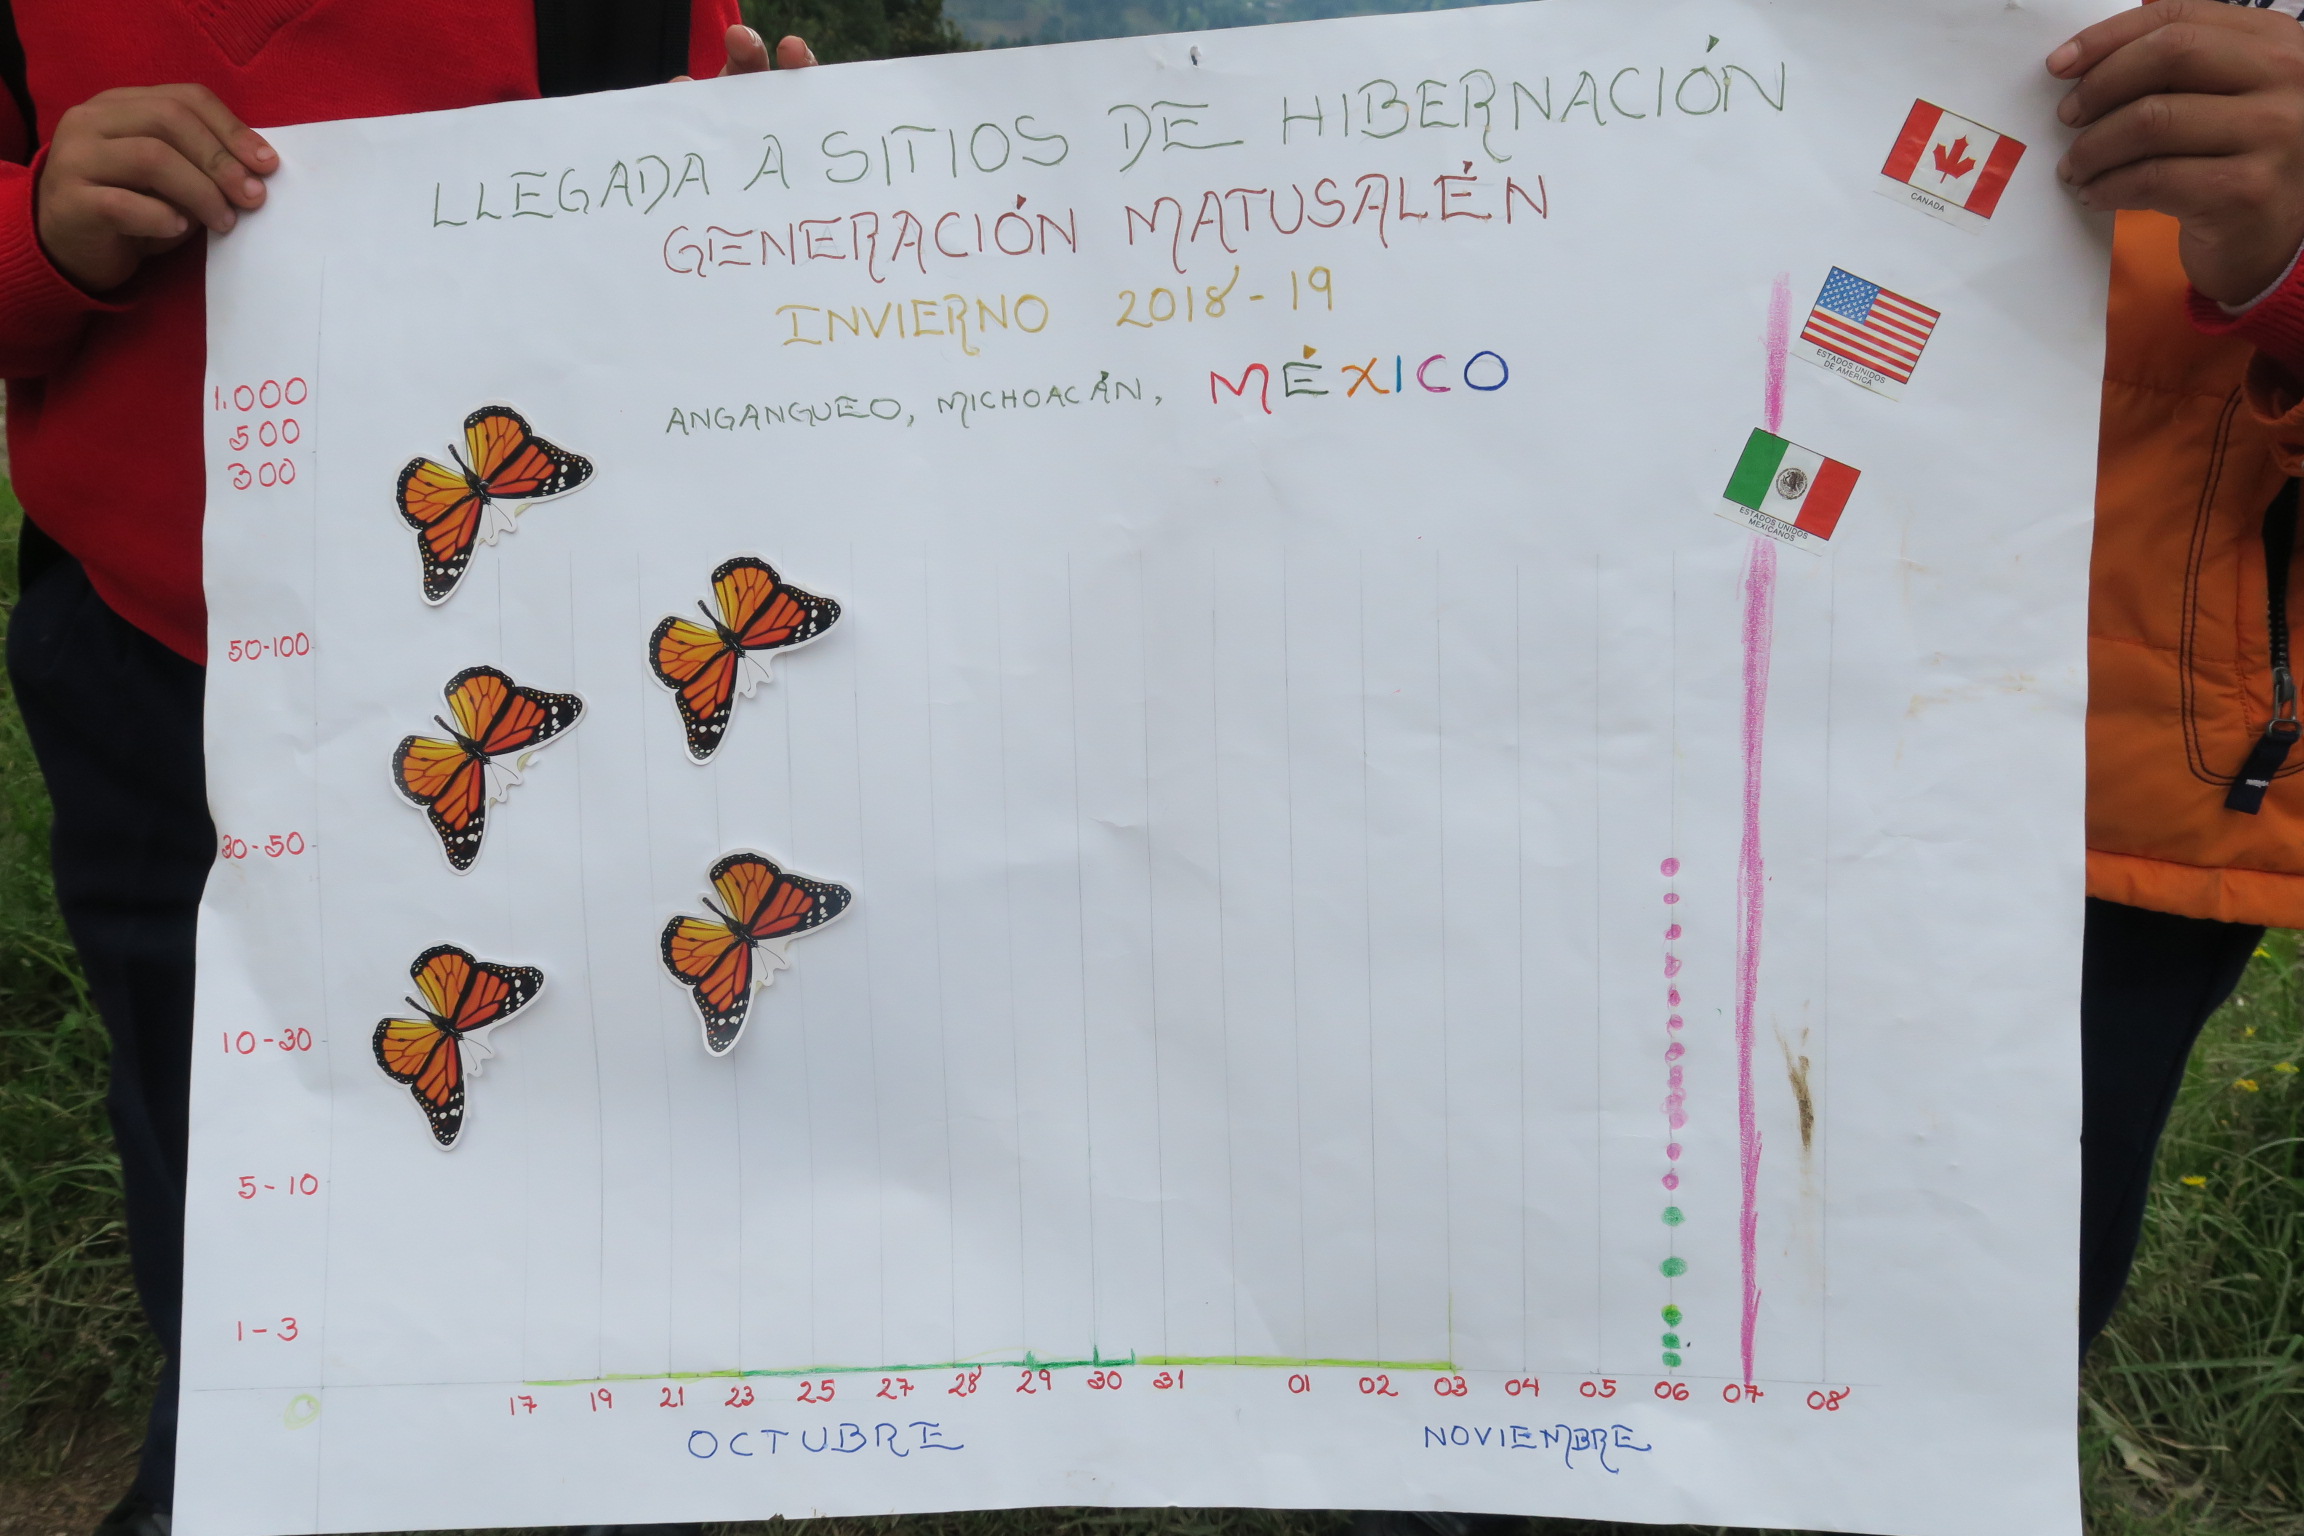 LLEGADA A SITIOS DE HIBERNACIÓN
GENERACIÓN MATUSALÉN
INVIERNO 2018-19
ANGANGUEO, MICHOACÁN, MÉXICO
CANADA
ESTADOS UNIDOS
DE AMERICA
ESTADOS UNIDOS
MEXICANOS
1.000
500
300
50-100
30-50
10-30
5-10
1-3
0
17 19 21 23 25 27 28 29 30 31 01 02 03 04 05 06 07 08
OCTUBRE NOVIEMBRE